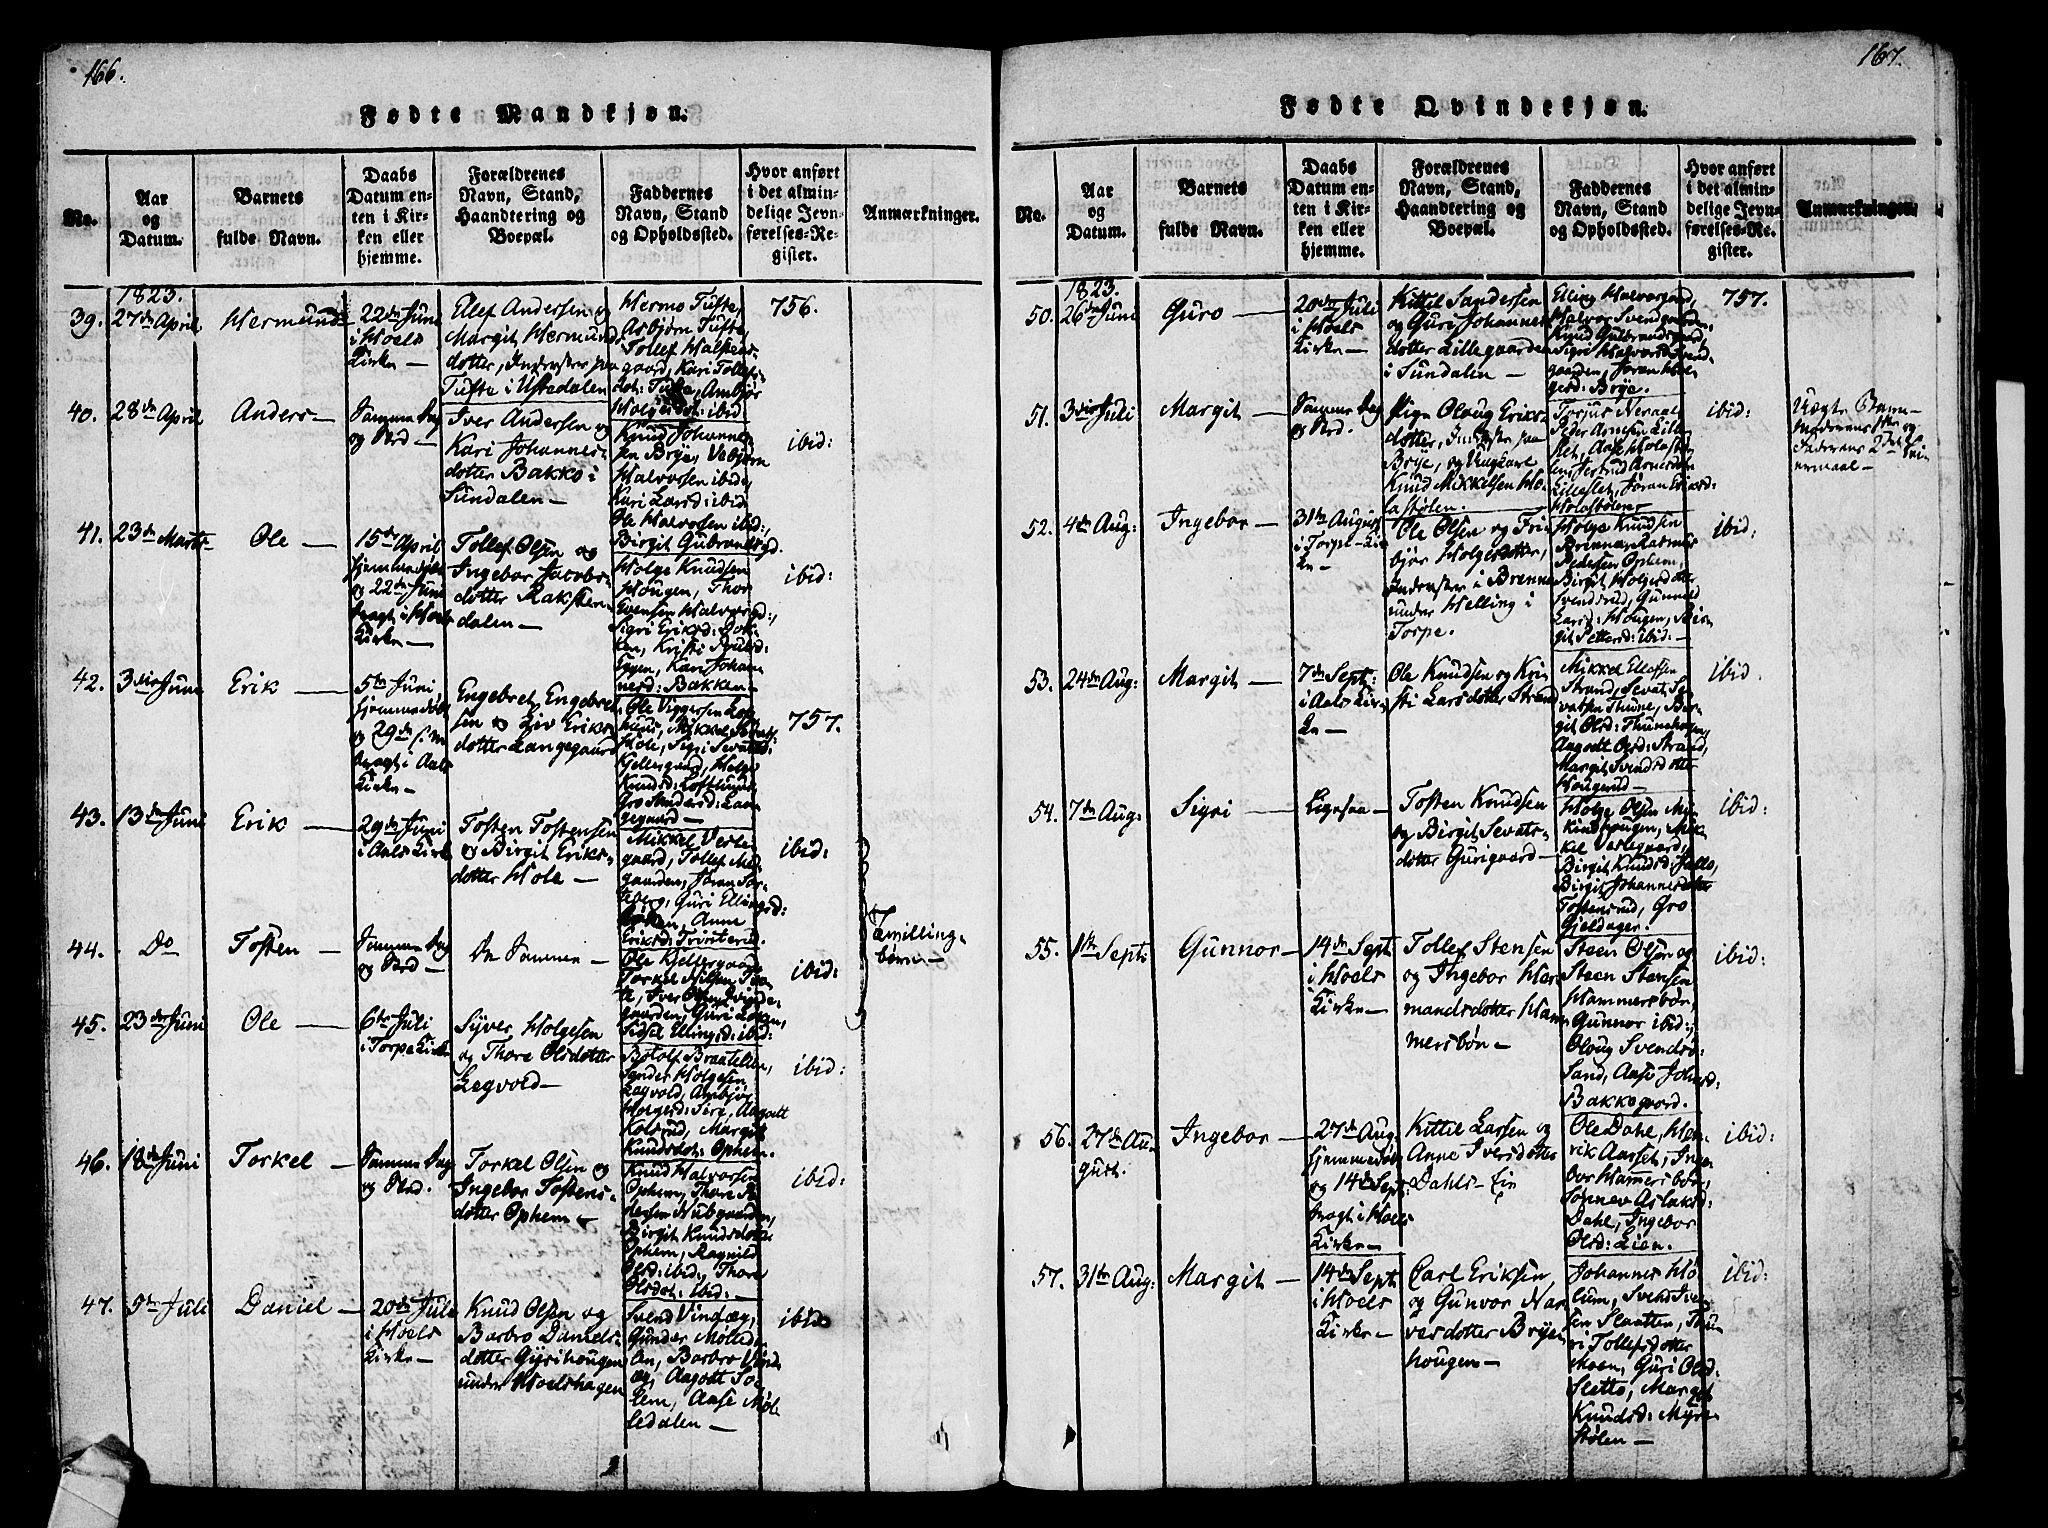 166.
Fødte Mandkjøn.
No.
Aar
og
Datum.
Barnets
fulde Navn.
Daabs
Datum en-
ten i Kir-
ken eller
hjemme.
Forældrenes
Navn, Stand,
Haandtering og
Boepæl.
Faddernes
Navn, Stand
og Opholdssted.
Hvor anført
i det almin-
delige Jevn-
førelses-Re-
gister.
Anmærkninger.
1823.
39.
27de April
Hermund
22de Juni
i Hoels
Kirke
Elef Andersen og
Margit Hermunds
dotter, Inderster paa
Tufte i Ustedalen
Hermo Tufte,
Asbjørn Tufte,
gaard, Kari Tollefs-
dot: Tufte, Ambjør
Holgersdt: ibid
756.
40.
28de April
Anders
Samme Dag
og Sted
Iver Andersen og
Kari Johannes-
dotter Bakko i
Sundalen
Knud Johanne-
sen Brye, Vebjørn
Halvorsen ibid,
Kari Larsd: ibid
Ole Halvorsen ibid:,
Birgit Gubrandsd.
ibid:
41.
23de Marts
Ole
15de April
hjemmedøbt
og 22de Juni
bragt i Hoels
Kirke
Tollef Olsen og
Ingebor Jacobs-
dotter Raksten-
dalen
Holge Knudsen
Hougen, Thor
Evensen Halvorsg:
Sigri Eriksd: Bak-
ken, Kristi Paulsd:
Eggen, Kari Johan-
nesd: Bakken
ibid:
42.
3die Juni
Erik
5te Juni,
hjemmedøbt
og 29de s: m:
bragt i Aals
Kirke
Engebret Engebret-
sen og Liv Eriks-
dotter Langegaard
Ole Viggersen
Hole, Sigri Sevatsd:
Kjellergaard, Helge
Knudsd:
Gro Andersd: Lan-
gegaard
757.
43.
13de Juni
Erik
29de Juni
i Aals Kirke
Tosten Tostensen
og Birgit Eriks-
dotter Hole
Mikkel Veste-
gaard, Tollef Med-
gaarden, Jøran Tor-
Guri Ellingsd:
Anne
Eriksd: Trinterud.
ibid:
Tvilling-
børn
44.
Do
Tosten
Samme Dag
og Sted
De Samme
Ole Kjellergaard
Torkel Nilsen
Iver Olsen
gaarden, Guri
Sidsel Ellingsd: ibid:
ibid:
45.
23de Juni
Ole
6te Juli
i Torpe Kirke
Syver Holgesen
og Thore Olsdotter
Legvold
Botolf Braatelien,
Sander Holgesen
Legvold, Ambjør
Holgersd: Sire, Aagodt
Kolsrud, Margit
Knudsdot: Ophem.
ibid:
46.
18de Juni
Torkel
Samme Dag
og Sted.
Torkel Olsen og
Ingebor Tostens-
dotter Ophem
Knud Halvorsen
Ophem, Thore
dersen Nubgaarden,
Birgit Knudsdotter
Ophem, Ragnild
Olsd: ibid:, Thore
Olsdot: ibid:
ibid:
47.
5te Juli
Daniel
20de Juli
i Hoels
Kirke
Knud Olsen og
Barbro Daniels-
dotter Gyrihougen
under Hoelshagen
Svend Vindeg,
Gunder Mølleda-
len, Barbro Vind-
eg, Aagodt So-
lem, Aase Møl-
ledalen
ibid
167.
Fødte Qvindekjøn.
No.
Aar
og
Datum.
Barnets
fulde Navn.
Daabs
Datum en-
ten i Kir-
ken eller
hjemme.
Forældrenes
Navn, Stand,
Haandtering og
Boepæl.
Faddernes
Navn, Stand
og Opholdssted.
Hvor anført
i det almin-
delige Jevn-
førelses-Re-
gister.
Anmærkninger.
1823.
50.
26de Juni
Guro
20de Juli
i Hoels
Kirke
Kittil Sandersen
og Guri Johannes-
dotter Lillegaarden
i Sundalen
Elling Halvorgaard,
Halvor Svendgaarden,
Knud Guldbrandsgaard,
Sigri Halvorsd: Svend-
gaarden, Jøran Hol-
gersd: Brye.
757.
51.
3die Juli
Margit
Samme Dag
og Sted.
Pige Oloug Eriks-
dotter, Inderste paa
Brye, og Ungkarl
Knud Mikkelsen Ho-
lastølen.
Torjus Neraal
Peder Arnesen Lille-
slet, Aase Holastø-
len, Gertrud Arnesdotter
Lilleslet, Jøran Eriksd:
Holastølen
ibid:
Uægte Barn
Moderens 1ste og
Faderens 2det Lei-
ermaal
52.
4de Aug:
Ingebor
31te August
i Torpe Kir-
ke
Ole Olsen og Tri-
bjør Holgersdotter,
Inderster i Brenne
under Helling i
Torpe.
Holge Knudsen
Brenne, Rasmus
Pedersen Ophem,
Birgit Holgersdotter
Svendsrud, Gunnild
Larsd: Hougen, Bir-
git Pettersd: ibid:
ibid:
53.
24de Aug:
Margit
7de Sept:
i Aals Kir-
ke
Ole Knudsen og Kri-
sti Larsdotter Strand
Mikkel Ellefsen
Strand, Sevat Se-
vatsen Thune, Bir-
git Olsd: Thunehougen,
Aagodt Olsd: Strand,
Margit Svendsdotter
Hougerud
ibid.
54.
7de Aug:
Sigri
Ligesaa
Tosten Knudsen
og Birgit Sevats-
dotter Gurigaard
Holge Olsen
Mik-
kel Vestegaard,
Birgit Knudsd:
Birgit Johannesdotter
Tostensrud, Gro
Gjeldager.
ibid:
55.
1ste Sept:
Gunnor
14de Sept:
i Hoels
Kirke
Tollef Stensen
og Ingebor Her-
mandsdotter Ham-
mersbøn
Steen Olsen og
Steen Stensen
Hammersbøn,
Gunnor ibid:,
Oloug Svendsd:
Sand, Aase Johansd:
Bakkegaard.
ibid:
56.
27de Au-
gust.
Ingebor
27de Aug:
hjemmedøbt
og 14de Sept:
bragt i Hoels
Kirke
Kittil Larsen og
Anne Iversdotter
Dahls-Eie
Ole Dahl, Hen-
rik Aaset, Inge-
bor Hammersbøn,
Sønnev Aslaksd:
Dahl, Ingebor
Olsd: Lien.
ibid:
57.
31te Aug:
Margit
14de Sept:
i Hoels
Kirke
Carl Eriksen
og Gunvor Nar-
vesdotter Brye-
hougen
Johannes Ho-
lum, Svend Sven-
sen Slaatten, Thu-
ri Tollefsdotter
Moen, Guri Olsd:
Sletto, Margit
Knudsd: Myre-
stølen
ibid: